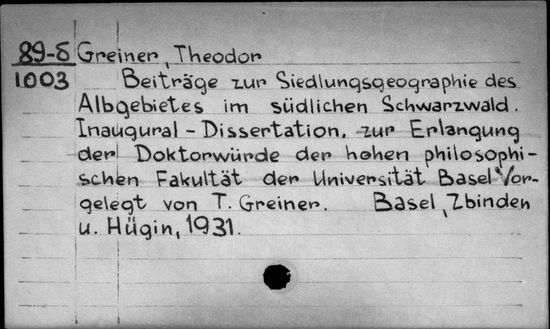 89-8 Greiner, Theodor
1003 Beiträge zur Siedlungsgeographie des
Albgebietes im südlichen Schwarzwald.
Inaugural-Dissertation, zur Erlangung
der Doktorwürde der hohen philosophi-
schen Fakultät der Universität Basel Vor-
gelegt von T. Greiner. Basel, Zbinden
u. Hügin, 1931.